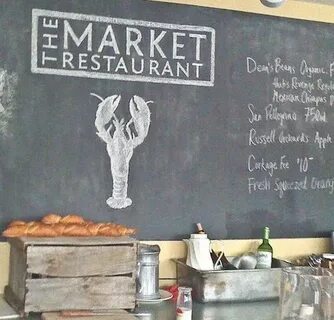 THE MARKET
RESTAURANT
Dean's Beans Organic F
Regular
Mexican Chiapas
San Pellegrino 750ml
Russell Orchards Apple
Corkage Fee "10"
Fresh Squeezed Orange